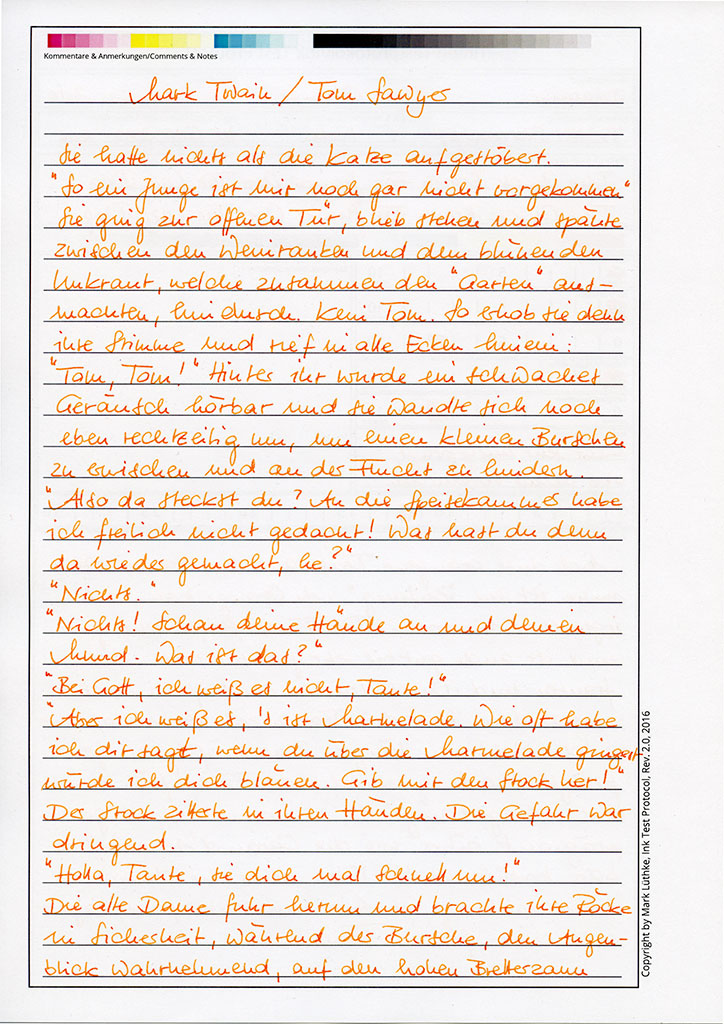 Kommentare & Anmerkungen/Comments & Notes
Mark Twain / Tom Sawyer
Sie hatte nichts als die Katze aufgestöbert.
"So ein Junge ist mir noch gar nicht vorgekommen"
Sie ging zur offenen Tür, blieb stehen und spähte
zwischen den Weinranken und dem blühenden
Unkraut, welche zusammen den "Garten" aus-
machten, hindurch. Kein Tom. So erhob sie denn
ihre Stimme und rief in alle Ecken hinein:
"Tom, Tom!" Hinter ihr wurde ein schwaches
Geräusch hörbar und sie wandte sich noch
eben rechtzeitig um, um einen kleinen Burschen
zu erwischen und an der Flucht zu hindern.
"Also da steckst du? An die Speisekammer habe
ich freilich nicht gedacht! Was hast du denn
da wieder gemacht, he?"
"Nichts."
"Nichts! Schau deine Hände an und deinen
Mund. Was ist das?"
"Bei Gott, ich weiß es nicht, Tante!"
"Aber ich weiß es, 's ist Marmelade. Wie oft habe
ich dir sagt, wenn du über die Marmelade gingest
würde ich dich bläuen. Gib mir den Stock her!"
Der Stock zitterte in ihren Händen. Die Gefahr war
dringend.
"Holla, Tante, sie dich mal schnell um!"
Die alte Dame fuhr herum und brachte ihre Röcke
in Sicherheit, während der Bursche, den Augen-
blick wahrnehmend, auf den hohen Bretterzaun
Copyright by Mark Lüthke, Ink Test Protocol, Rev. 2.0, 2016